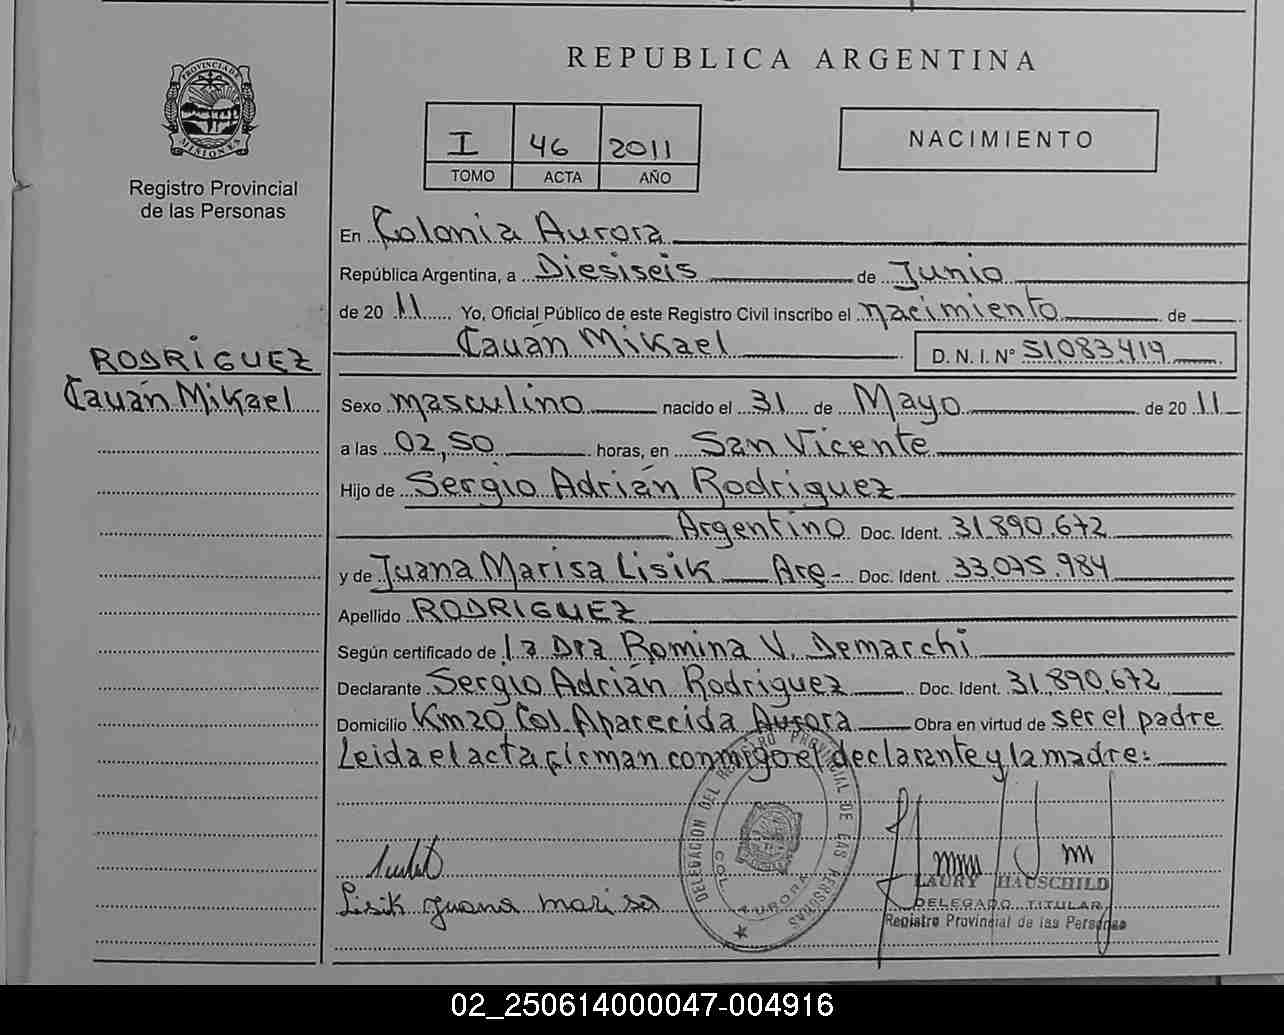 REPUBLICA ARGENTINA
PROVINCIA DE MISIONES
Registro Provincial
de las Personas
I 46 2011
TOMO ACTA AÑO
NACIMIENTO
RODRIGUEZ
Cauán Mikael
En Colonia Aurora
República Argentina, a Diesiseis de Junio
de 20 11 Yo, Oficial Público de este Registro Civil inscribo el nacimiento de
Cauán Mikael D. N. I. Nº 51.083.419
Sexo masculino nacido el 31 de Mayo de 20 11
a las 02,50 horas, en San Vicente
Hijo de Sergio Adrián Rodriguez
Argentino Doc. Ident. 31.890.672
y de Juana Marisa Lisik Arg- Doc. Ident. 33.075.984
Apellido RODRIGUEZ
Según certificado de la Dra Romina V. Demarchi
Declarante Sergio Adrián Rodriguez Doc. Ident. 31.890.672
Domicilio Km20 Col. Aparecida Aurora Obra en virtud de ser el padre
Leida el acta firman conmigo el declarante y la madre:
DELEGACION DEL REGISTRO PROVINCIAL DE LAS PERSONAS
COL. AURORA
Lisik Juana marisa
LAURY HAUSCHILD
DELEGADO TITULAR
Registro Provincial de las Personas
02_250614000047-004916